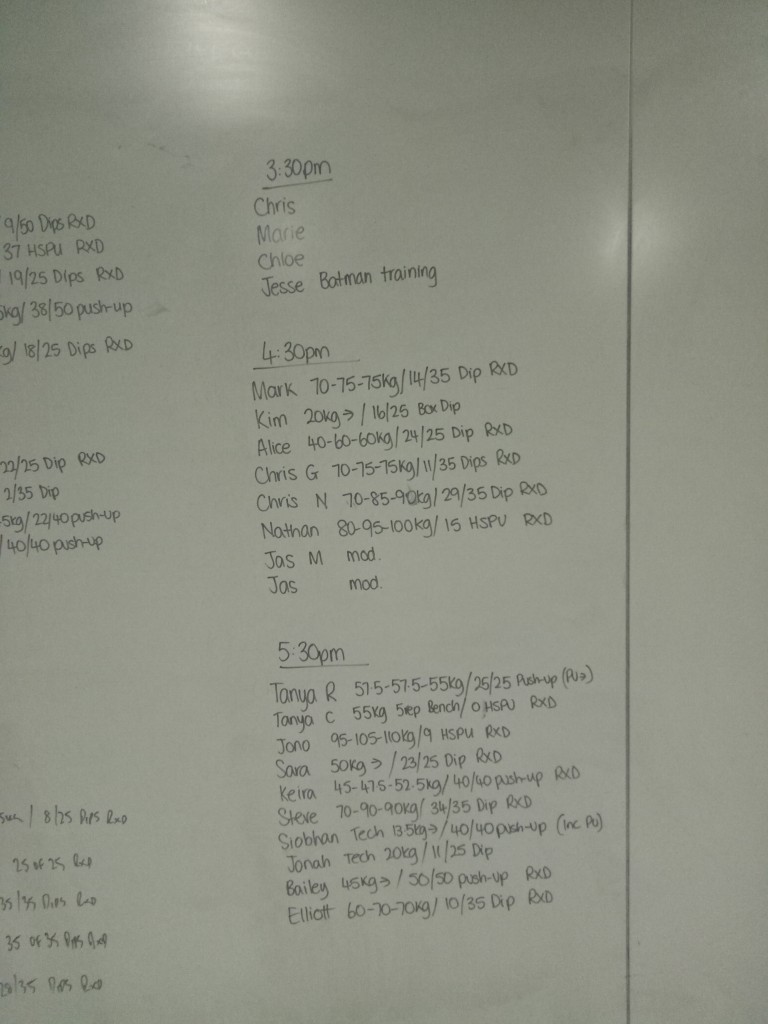 9/50 Dips RXD
37 HSPU RXD
19/25 Dips RXD
5kg/ 38/50 push-up
kg/ 18/25 Dips RXD
22/25 Dip RXD
2/35 Dip
.5kg/ 22/40 push-up
/ 40/40 push-up
/ 8/25 Dips RXD
25 of 25 RXD
35/35 Dips RXD
35 of 35 Dips RXD
/35 Dips RXD
3:30pm
Chris
Marie
Chloe
Jesse Batman training
4:30pm
Mark 70-75-75kg/14/35 Dip RXD
Kim 20kg→ / 16/25 Box Dip
Alice 40-60-60kg/24/25 Dip RXD
Chris G 70-75-75kg/11/35 Dips RXD
Chris N 70-85-90kg/29/35 Dip RXD
Nathan 80-95-100kg/ 15 HSPU RXD
Jas M mod.
Jas mod.
5:30pm
Tanya R 57.5-57.5-55kg/25/25 Push-up (PU→)
Tanya C 55kg 5rep Bench/ 0 HSPU RXD
Jono 95-105-110kg/9 HSPU RXD
Sara 50kg→ / 23/25 Dip RXD
Keira 45-47.5-52.5kg/ 40/40 push-up RXD
Steve 70-90-90kg/ 34/35 Dip RXD
Siobhan Tech 13.5kg→/40/40 push-up (inc PU)
Jonah Tech 20kg/ 11/25 Dip
Bailey 45kg→ / 50/50 push-up RXD
Elliott 60-70-70kg/ 10/35 Dip RXD